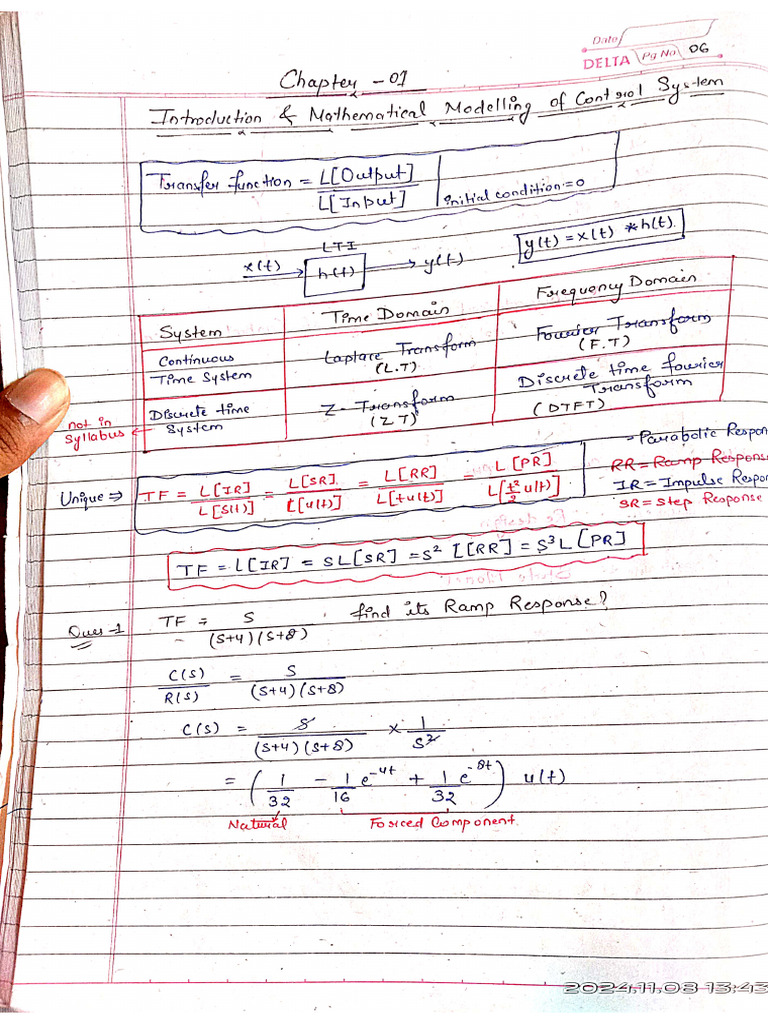 Date
DELTA Pg No 06
Chapter - 01
Introduction & Mathematical Modelling of Control System
Transfer function = L[Output] / L[Input] | initial condition = 0
LTI
x(t) → h(t) → y(t)
y(t) = x(t) * h(t).
System | Time Domain | Frequency Domain
Continuous Time System | Laplace Transform (L.T) | Fourier Transform (F.T)
Discrete time System | Z-Transform (ZT) | Discrete time fourier Transform (DTFT)
not in syllabus
= Parabolic Respon
RR = Ramp Response
IR = Impulse Respon
SR = Step Response
Unique ⇒ TF = L[IR] / L[δ(t)] = L[SR] / L[u(t)] = L[RR] / L[tu(t)] = L[PR] / L[t²/2 u(t)]
TF = L[IR] = SL[SR] = S² L[RR] = S³ L[PR]
Ques-1 TF = S / (S+4)(S+8) find its Ramp Response?
C(S) / R(S) = S / (S+4)(S+8)
C(S) = S / (S+4)(S+8) × 1 / S²
= (1/32 - 1/16 e^-4t + 1/32 e^-8t) u(t)
Natural Forced Component
2024.11.08 13:43